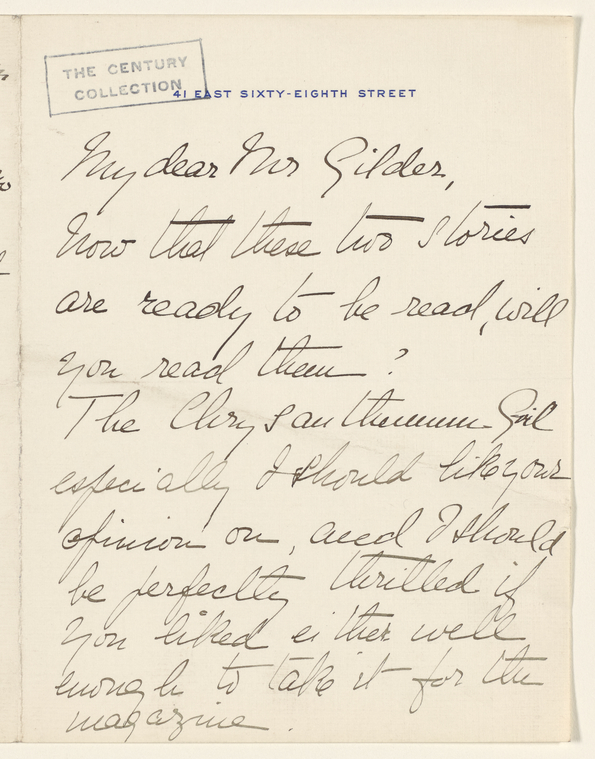 THE CENTURY
COLLECTION
41 EAST SIXTY-EIGHTH STREET
My dear Mr Gilder,
Now that these two stories
are ready to be read, will
you read them?
The Chrysanthemum Girl
especially I should like your
opinion on, and I should
be perfectly thrilled if
you liked either well
enough to take it for the
magazine.